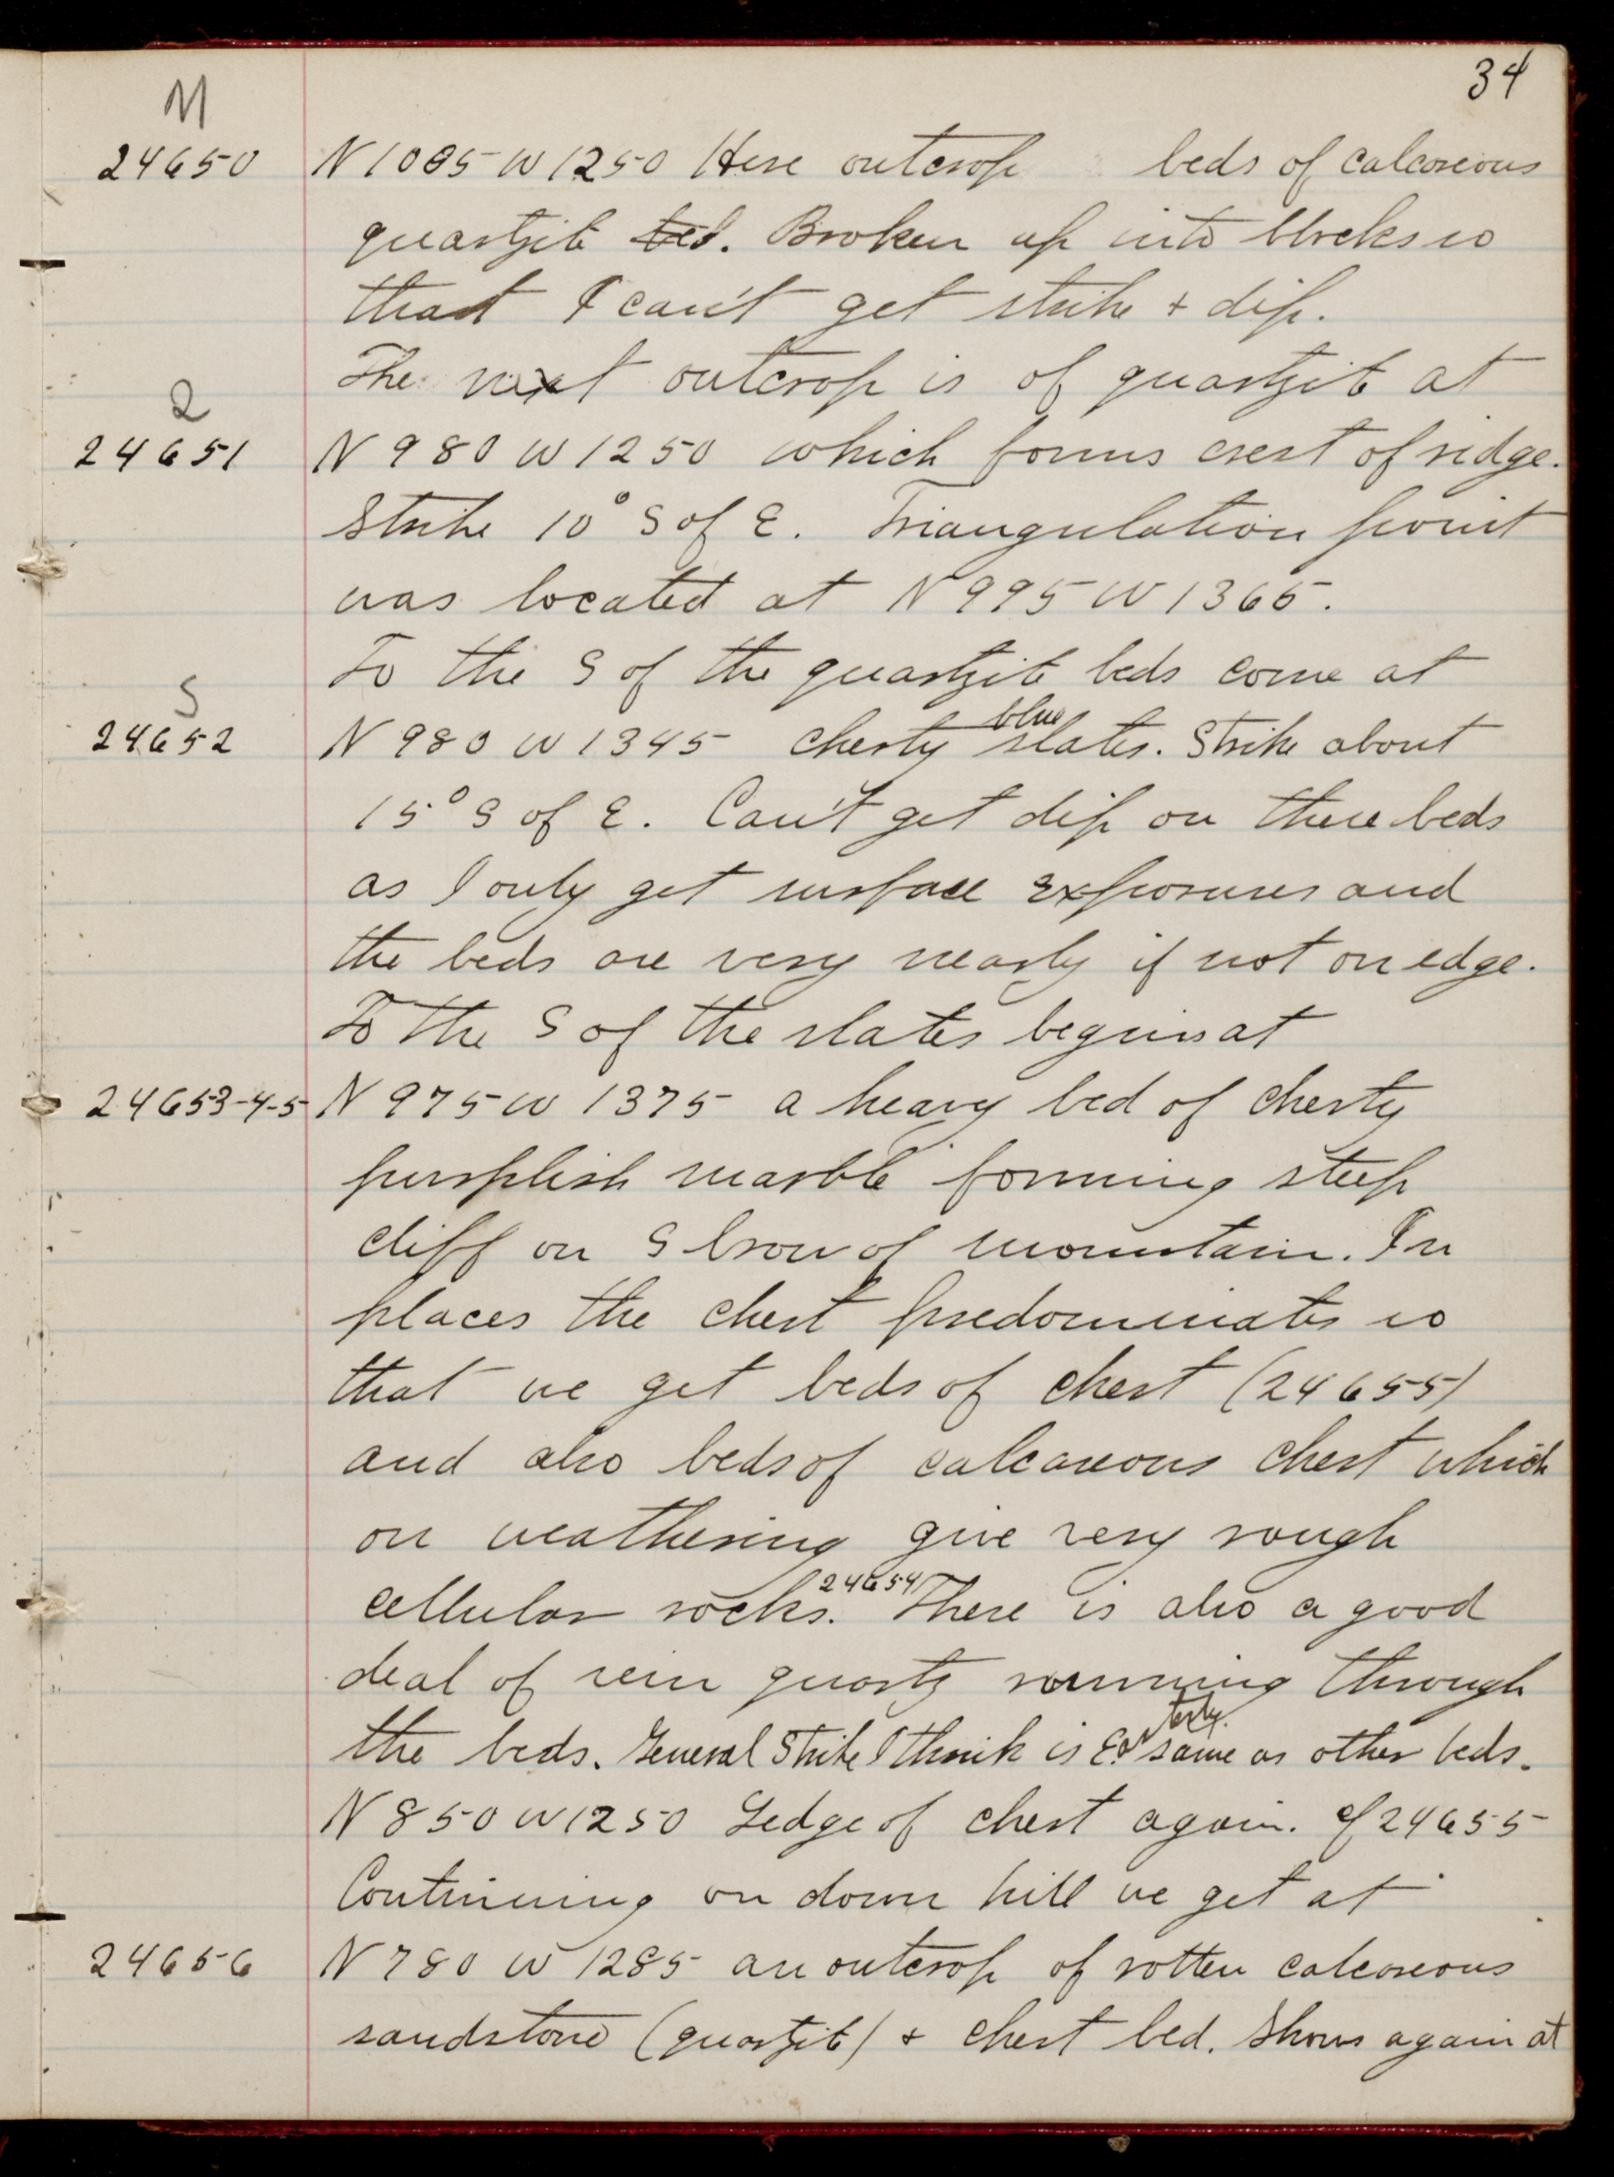 34
M
24650 N 1085 W 1250 Here outcrop beds of calcareous
quartzite bed. Broken up into blocks so
that I can't get strike + dip.
The next outcrop is of quartzite at
Q
24651 N 980 W 1250 which forms crest of ridge.
Strike 10° S of E. Triangulation point
was located at N 995 W 1365.
To the S of the quartzite beds come at
S
blue
24652 N 980 W 1345 cherty slates. Strike about
15° S of E. Can't get dip on these beds
as I only get surface exposures and
the beds are very nearly if not on edge.
To the S of the slates begins at
24653-4-5 N 975 W 1375 a heavy bed of cherty
purplish marble forming steep
cliff on S brow of mountain. In
places the chert predominates so
that we get beds of chert (24655)
and also beds of calcareous chert which
on weathering give very rough
24654
cellular rocks. There is also a good
deal of vein quartz running through
terly.
the beds. General Strike I think is E. or same as other beds.
N 850 W 1250 Ledge of chert again. cf 24655
Continuing on down hill we get at
24656 N 780 W 1285 an outcrop of rotten calcareous
sandstone (quartzite) + chert bed. Shows again at